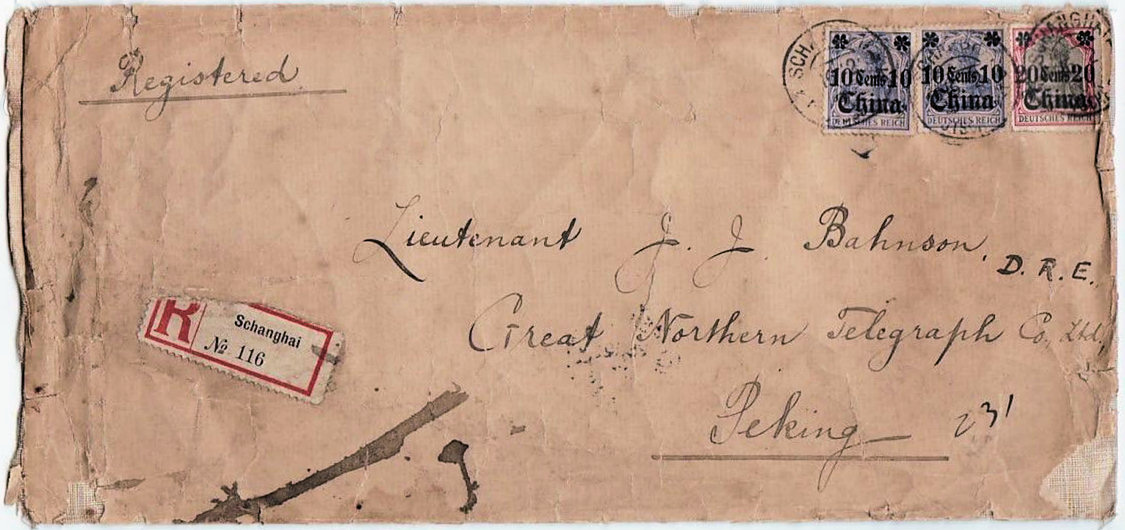 Registered
10 Cents 10
China
DEUTSCHES REICH
10 Cents 10
China
DEUTSCHES REICH
20 Cents 20
China
DEUTSCHES REICH
Lieutenant J. J. Bahnson,
D. R. E.
Great Northern Telegraph Co, Ltd,
R
Schanghai
№ 116
Peking
231